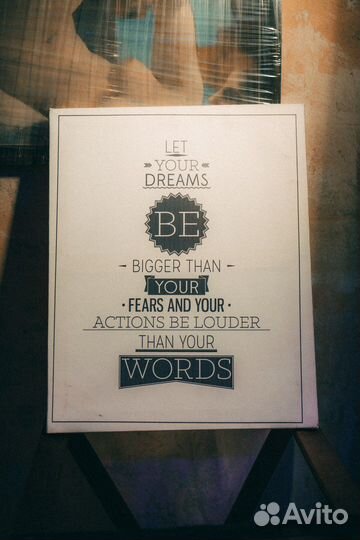 LET
YOUR
DREAMS
BE
BIGGER THAN
YOUR
• FEARS AND YOUR •
ACTIONS BE LOUDER
THAN YOUR
WORDS
Avito